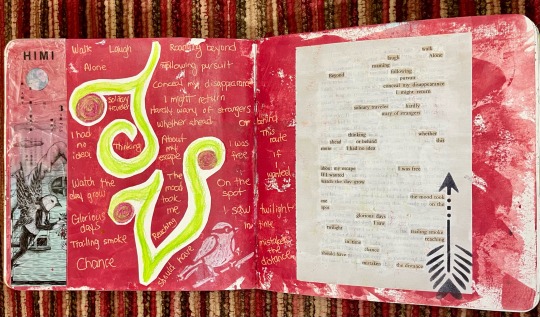 HIMI
Walk Laugh Roaming beyond
Alone Following pursuit
Conceal my disappearance
I might return
solitary traveler
Hardly wary of strangers
Whether ahead or behind
I had
no
idea
Thinking
About
my
escape
I was
free
This
route
if
wanted
Watch the
day grow
The
mood
took
me
On the
spot
Glorious
days
Reaching
I saw
twilight
in
time
Trailing smoke
mistakes
the
distance
Chance
should have
walk
laugh Alone
roaming
Beyond following
pursuit
conceal my disappearance
I might return
solitary traveler hardly
wary of strangers
thinking whether
ahead or behind this
route I had no idea
about my escape I was free
if I wanted
watch the day grow
the mood took
on the
spot
glorious days
I saw
twilight trailing smoke
in time reaching
chance
should have
mistakes the distance